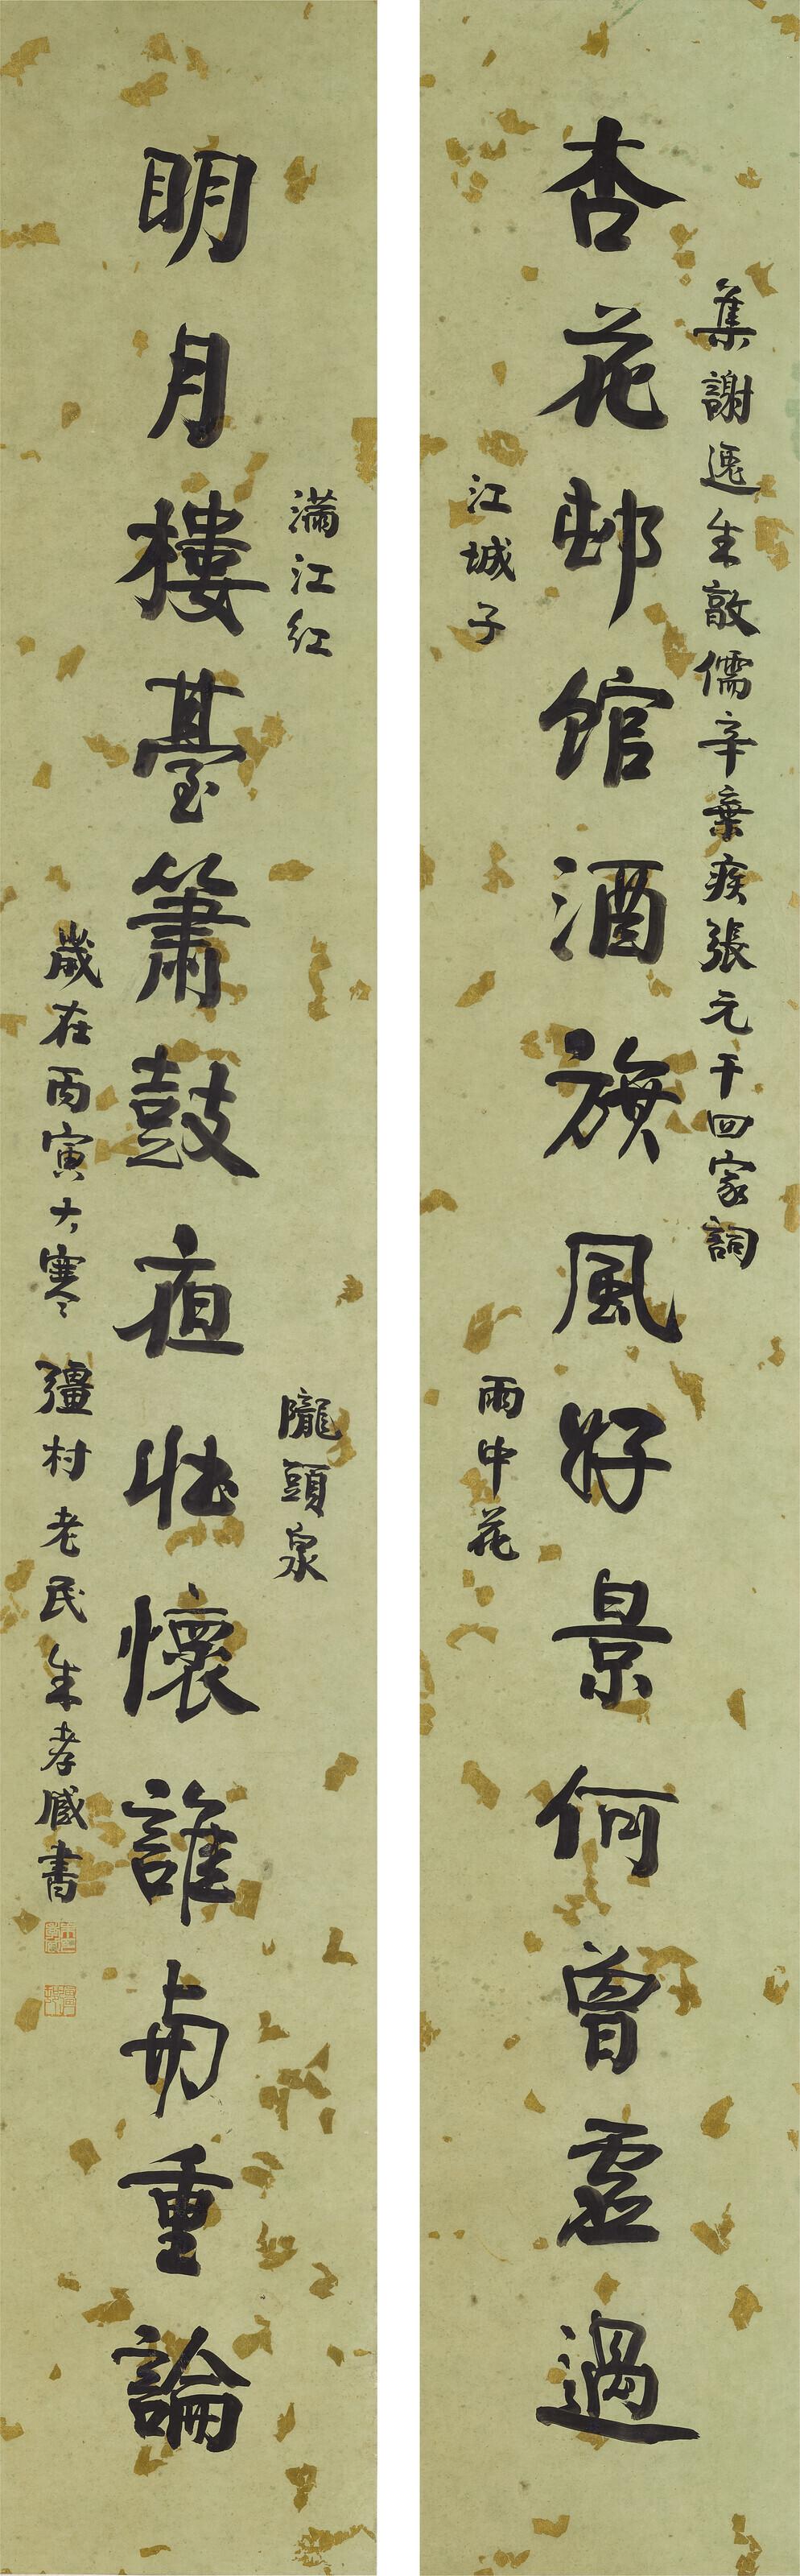 集謝逸朱敦儒辛棄疾張元干四家詞
杏花邨館酒旗風好景何曾虛過
江城子
雨中花
滿江紅
隴頭泉
明月樓臺簫鼓夜壯懷誰與重論
歲在丙寅大寒彊村老民朱孝臧書